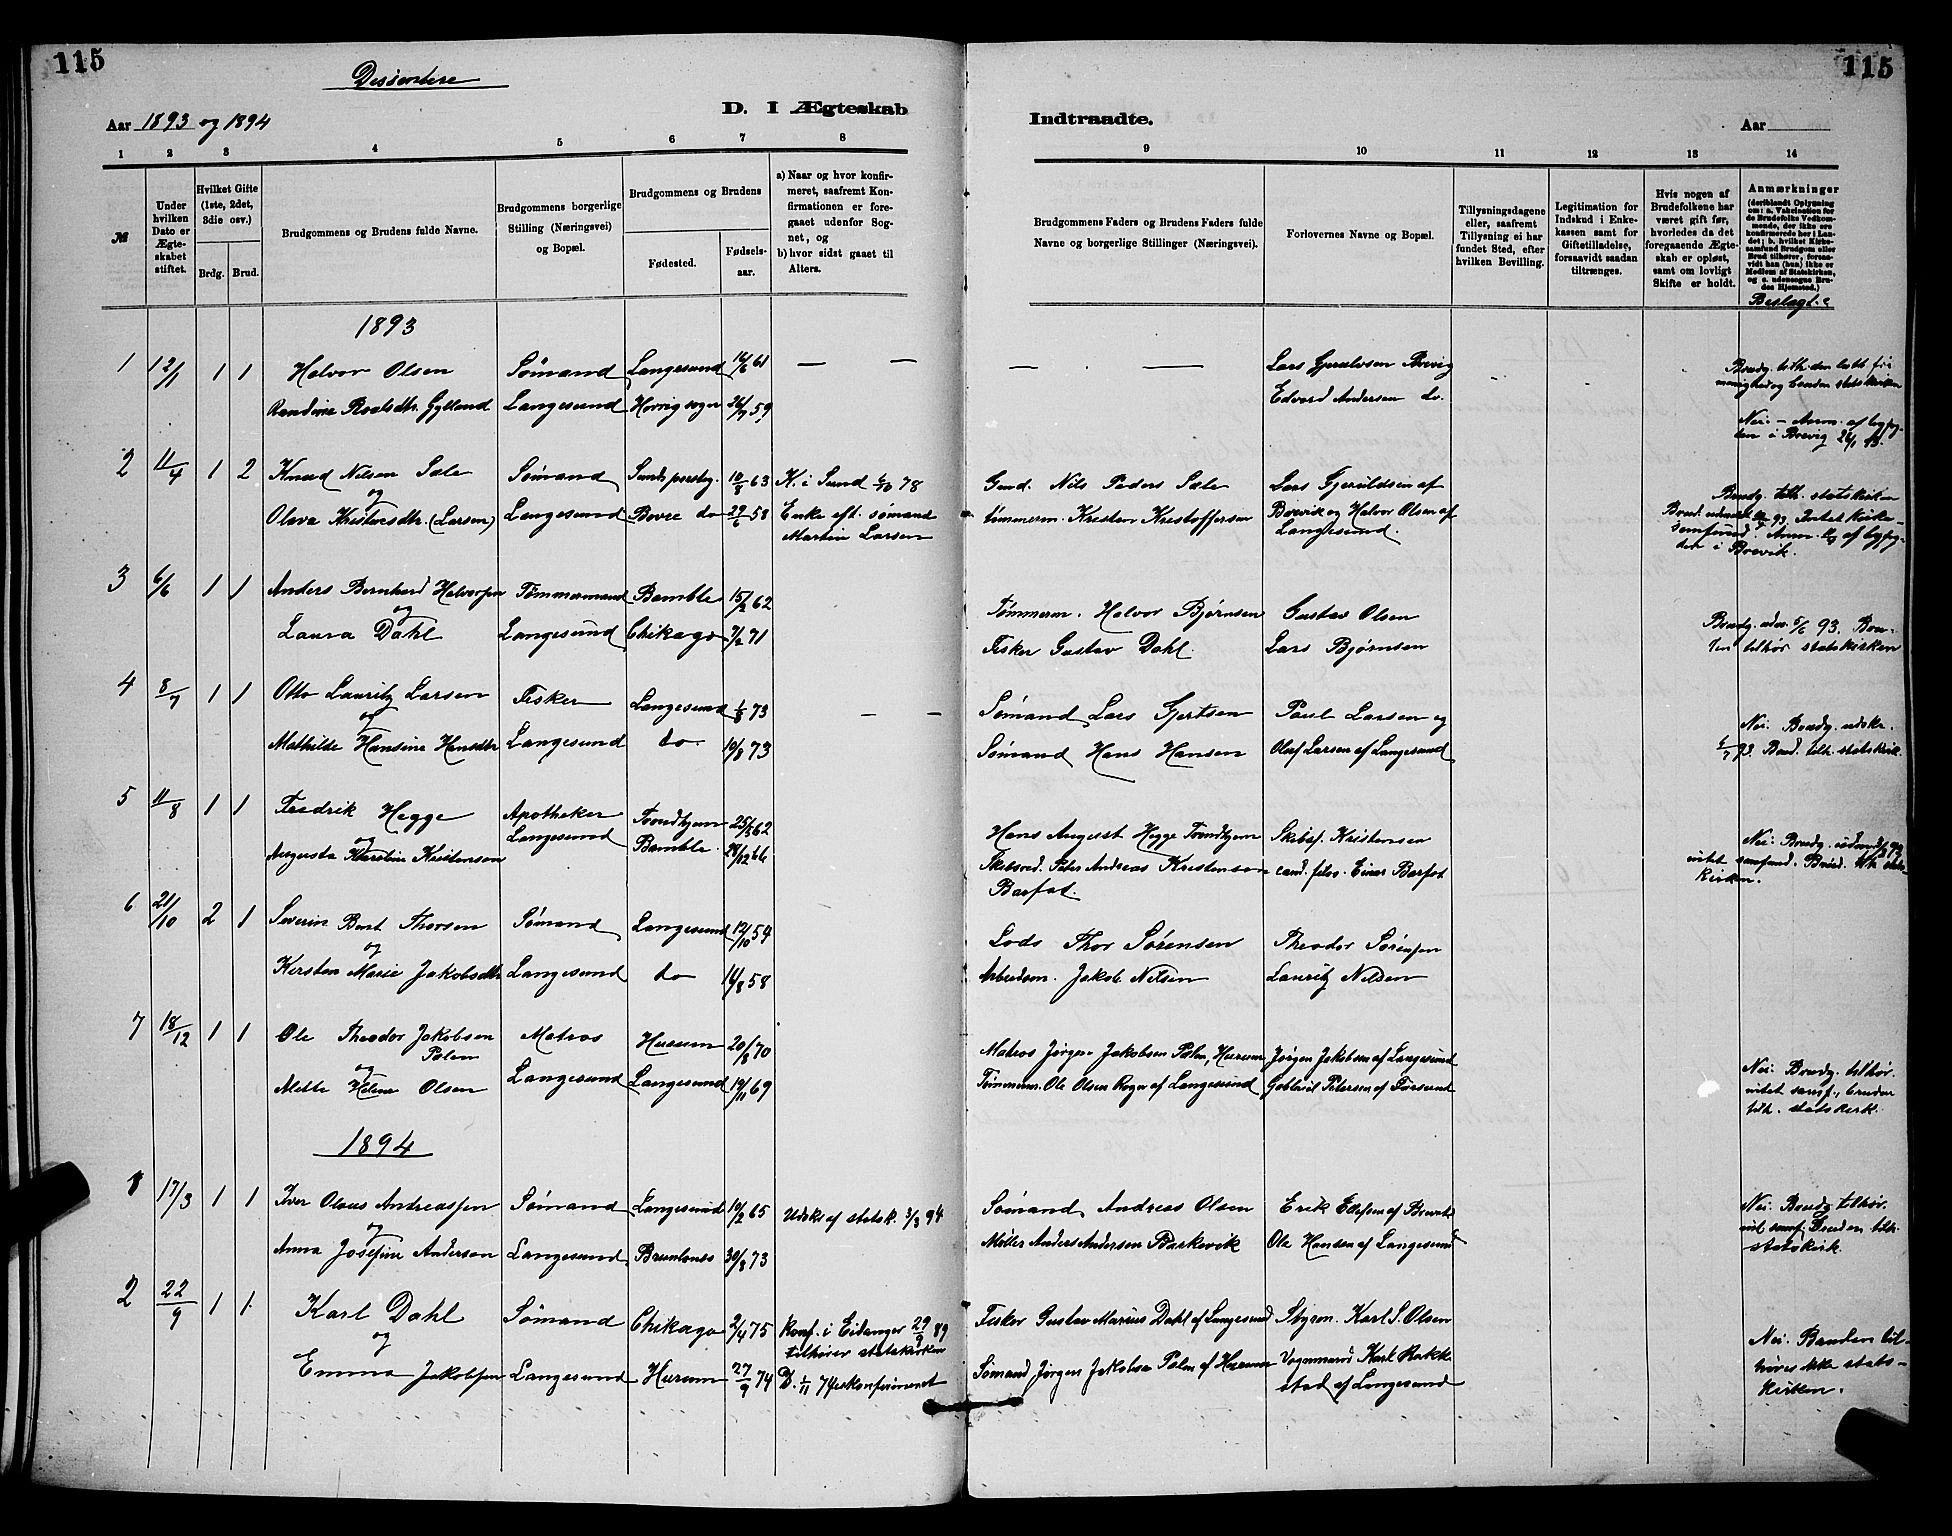 115
115
Dissentere
Aar 1893 og 1894
D. I Ægteskab
Indtraadte.
Aar
1 2 3 4 5 6 7 8
9 10 11 12 13 14
№
Under hvilken Dato er Ægteskabet stiftet.
Hvilket Gifte (1ste, 2det, 3die osv.)
Brdg. Brud.
Brudgommens og Brudens fulde Navne.
Brudgommens borgerlige Stilling (Næringsvei) og Bopæl.
Brudgommens og Brudens
Fødested.
Fødselsaar.
a) Naar og hvor konfirmeret, saafremt Konfirmationen er foregaaet udenfor Sognet, og
b) hvor sidst gaaet til Alters.
Brudgommens Faders og Brudens Faders fulde Navne og borgerlige Stillinger (Næringsvei).
Forlovernes Navne og Bopæl.
Tillysningsdagene eller, saafremt Tillysning ei har fundet Sted, efter hvilken Bevilling.
Legitimation for Indskud i Enkekassen samt for Giftetilladelse, forsaavidt saadan tiltrænges.
Hvis nogen af Brudefolkene har været gift før, hvorledes da det foregaaende Ægteskab er opløst, samt om lovligt Skifte er holdt.
Anmærkninger (deriblandt Oplysning om: a. Vakcination for de Brudefolks Vedkommende, der ikke ere konfirmerede her i Landet; b. hvilket Kirkesamfund Brudgom eller Brud tilhører, forsaavidt han (hun) ikke er Medlem af Statskirken, og c. udensogns Brudes Hjemsted.)
Beslægt.?
1893
1 12/1 1 1 Halvor Olsen Sømand Langesund 16/6 61 — — — — Lars Gjeruldsen Brevig
Randine Roaldsdtr. Gylland Langesund 26/7 59 Edvard Andersen do.
Brudg. tilh. den luth. frimenighed og bruden statskirken
Nei. – Anm. af bygfogden i Brevig
2 11/4 1 2 Knud Nilsen Sale Sømand 10/8 63 K. i Sund 6/10 78 Nils Peders Sale Lars Gjeruldsen af
og
Olava Kristensdtr. (Larsen) Langesund do 29/6 58 Enke eft. sømand tømmerm. Kristen Kristoffersen Brevik og Halvor Olsen af
Martin Larsen Langesund.
Brudg. tilh. statskirken
93. Intet kirkesamfund. af bygfogden i Brevik.
3 6/6 1 1 Anders Bernhard Halvorsen Tømmermand Bamble 15/2 62 Tømmerm. Halvor Bjørnsen Gustav Olsen
og
Laura Dahl Langesund Chikago 7/2 71 Fisker Gustav Dahl. Lars Bjørnsen
Brudg. udm. 5/6 93. Bruden tilhør statskirken
4 8/7 1 1 Otto Lauritz Larsen Fisker Langesund 1/8 73 — — Sømand Lars Gjertsen Paul Larsen og
og
Mathilde Hansine Hansdtr Langesund do. 10/8 73 Sømand Hans Hansen Oluf Larsen af Langesund
Nei. Brudg. udske. 93. Brud. tilh. statskirk.
5 11/8 1 1 Fredrik Hegge Apotheker Trondhjem 25/5 62 Hans August Hegge Trondhjem Skibsf. Kristensen
og
Augusta Karoline Kristensen Langesund Bamble. 28/12 66 Skibsred. Peter Andreas Kristensen cand. filos. Einar Barfod
Barfod.
Nei. Brudg. intet samfund. Brud. tilh. statskirken.
6 21/10 2 1 Severin Bent Thorsen Sømand Langesund 12/10 54 Lods Thor Sørensen Theodor Sørensen
og
Kirsten Marie Jakobsdtr Langesund do 14/8 58 Arbeidsm. Jakob Nilsen Lauritz Nilsen
7 18/12 1 1 Ole Theodor Jakobsen Matros Hurum 20/8 70 Matros Jørgen Jakobsen Palm, Hurum Jørgen Jakobsen af Langesund
Palm
og
Mette Helene Olsen Langesund Langesund 19/11 69 Tømmerm. Ole Olsen af Langesund Gabriel Petersen af Forsund
Nei. Brudg. tilhør. intet samf., bruden tilh. statskirk.
1894
1 17/3 1 1 Iver Olaus Andreassen Sømand Langesund 19/2 65 Udske af statsk. 3/3 94 Sømand Andreas Olsen Erik Edvsen af Brevik
og
Anna Josefine Andersen Langesund Brunlanes 30/8 73 Møller Anders Andersen Barkevik Ole Hansen af Langesund
Nei. Brudg tilhør. intet samf. Bruden tilh. statskirk.
2 22/9 1 1 Karl Dahl Sømand Chikago 2/4 75 Konf. i Eidanger 29/9 89 Fisker Gustav Marius Dahl af Langesund Styrm. Karl S. Olsen
og tilhører statskirken
Emma Jakobsen Langesund Hurum 27/9 74 D. 1/11 74 Sømand Jørgen Jakobsen Palm af Hurum Vognmand Karl Rakkestad af Langesund
Nei. Bruden tilhører ikke statskirken.